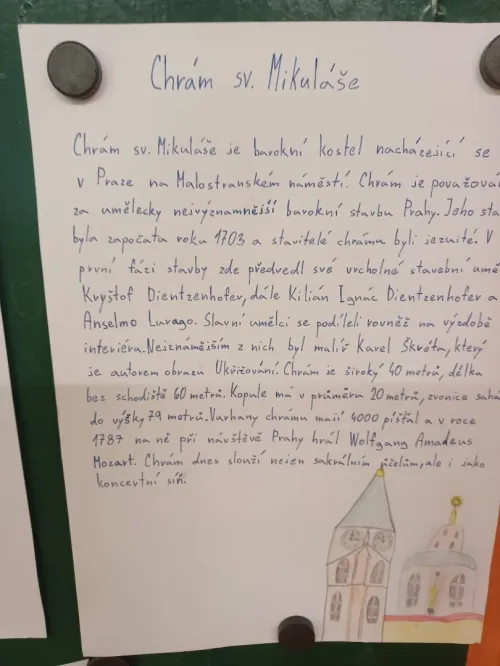 Chrám sv. Mikuláše
Chrám sv. Mikuláše je barokní kostel nacházející se
v Praze na Malostranském náměstí. Chrám je považová
za umělecky nejvýznamnější barokní stavbu Prahy. Jeho sta
byla započata roku 1703 a stavitelé chrámu byli jezuité. V
první fázi stavby zde předvedl své vrcholné stavební umě
Kryštof Dientzenhofer, dále Kilián Ignác Dientzenhofer a
Anselmo Lurago. Slavní umělci se podíleli rovněž na výzdobě
interiéru. Nejznámějším z nich byl malíř Karel Škréta, který
je autorem obrazu Ukřižování. Chrám je široký 40 metrů, délka
bez schodiště 60 metrů. Kopule má v průměru 20 metrů, zvonice sahá
do výšky 79 metrů. Varhany chrámu mají 4000 píšťal a v roce
1787 na ně při návštěvě Prahy hrál Wolfgang Amadeus
Mozart. Chrám dnes slouží nejen sakrálním účelům, ale i jako
koncertní síň.